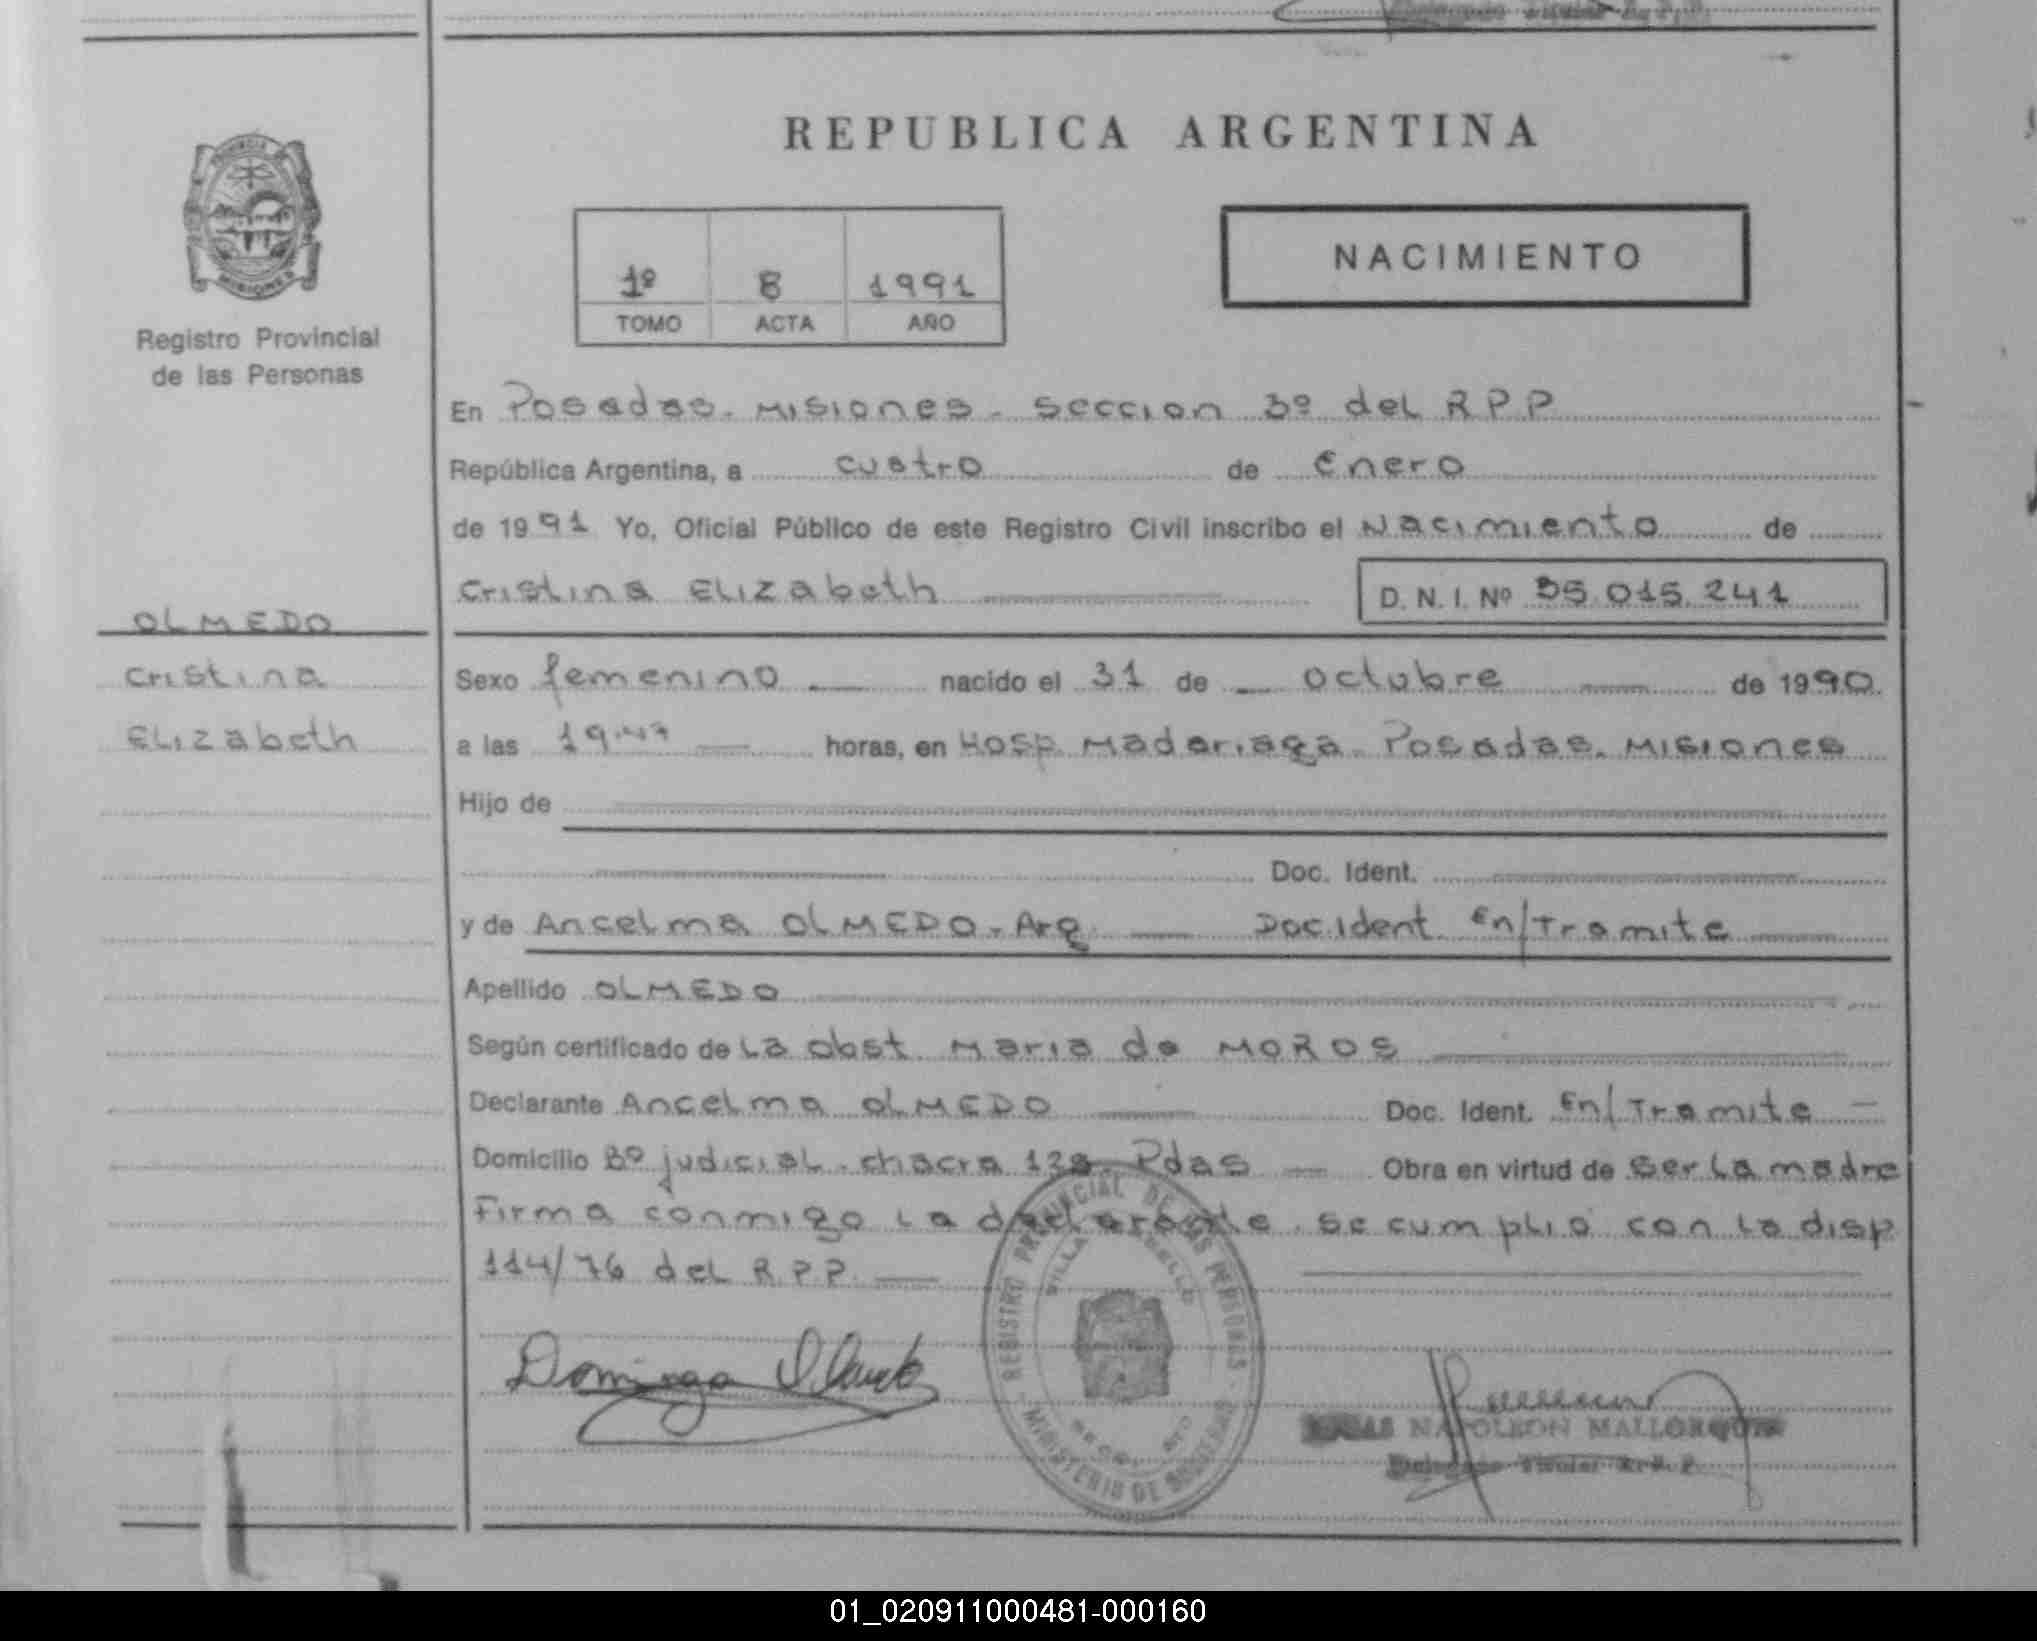 REPUBLICA ARGENTINA
PROVINCIA
MISIONES
Registro Provincial
de las Personas
1º 8 1991
TOMO ACTA AÑO
NACIMIENTO
En Posadas. Misiones. Seccion 3º del R P P
República Argentina, a cuatro de Enero
de 1991 Yo, Oficial Público de este Registro Civil inscribo el Nacimiento de
Cristina Elizabeth D. N. I. Nº 35.015.241
OLMEDO
Cristina
Elizabeth
Sexo femenino nacido el 31 de octubre de 1990.
a las 19.47 horas, en Hosp Madariaga. Posadas. Misiones
Hijo de
Doc. Ident.
y de Ancelma OLMEDO. Arg. Doc.Ident En/Tramite
Apellido OLMEDO
Según certificado de La obst. Maria de MOROS
Declarante Ancelma OLMEDO Doc. Ident. En/Tramite
Domicilio Bº judicial. chacra Pdas Obra en virtud de ser La madre
Firma conmigo La declarante. se cumplió con La disp
114/76 del R.P.P.
REGISTRO PROVINCIAL DE LAS PERSONAS
VILLA
MINISTERIO DE
Dominga
NAPOLEON MALLORQUIN
Titular R. P. P.
01_020911000481-000160